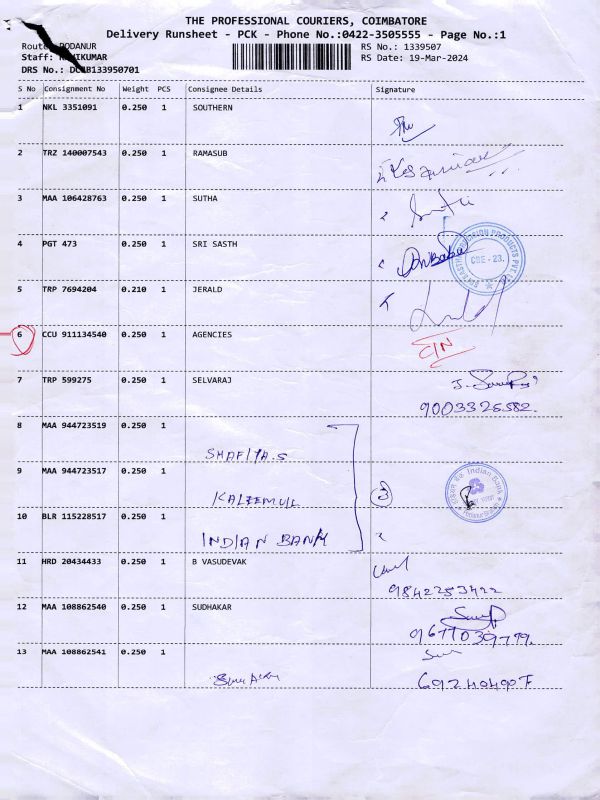 THE PROFESSIONAL COURIERS, COIMBATORE
Delivery Runsheet - PCK - Phone No.:0422-3505555 - Page No.:1
Route: PODANUR
RS No.: 1339507
Staff:
RS Date: 19-Mar-2024
DRS No.: 133950701
S No Consignment No Weight PCS Consignee Details Signature
1 NKL 3351091 0.250 1 SOUTHERN
2 TRZ 140007543 0.250 1 RAMASUB
3 MAA 106428763 0.250 1 SUTHA
4 PGT 473 0.250 1 SRI SASTH
CBE - 23.
5 TRP 7694204 0.210 1 JERALD
6 CCU 911134540 0.250 1 AGENCIES
7 TRP 599275 0.250 1 SELVARAJ
8 MAA 944723519 0.250 1
SHAFIYA.S
9 MAA 944723517 0.250 1
KALEEMULL
3
Indian Bank
10 BLR 115228517 0.250 1
INDIAN BANK
11 HRD 20434433 0.250 1 B VASUDEVAK
9842253422
12 MAA 108862540 0.250 1 SUDHAKAR
13 MAA 108862541 0.250 1